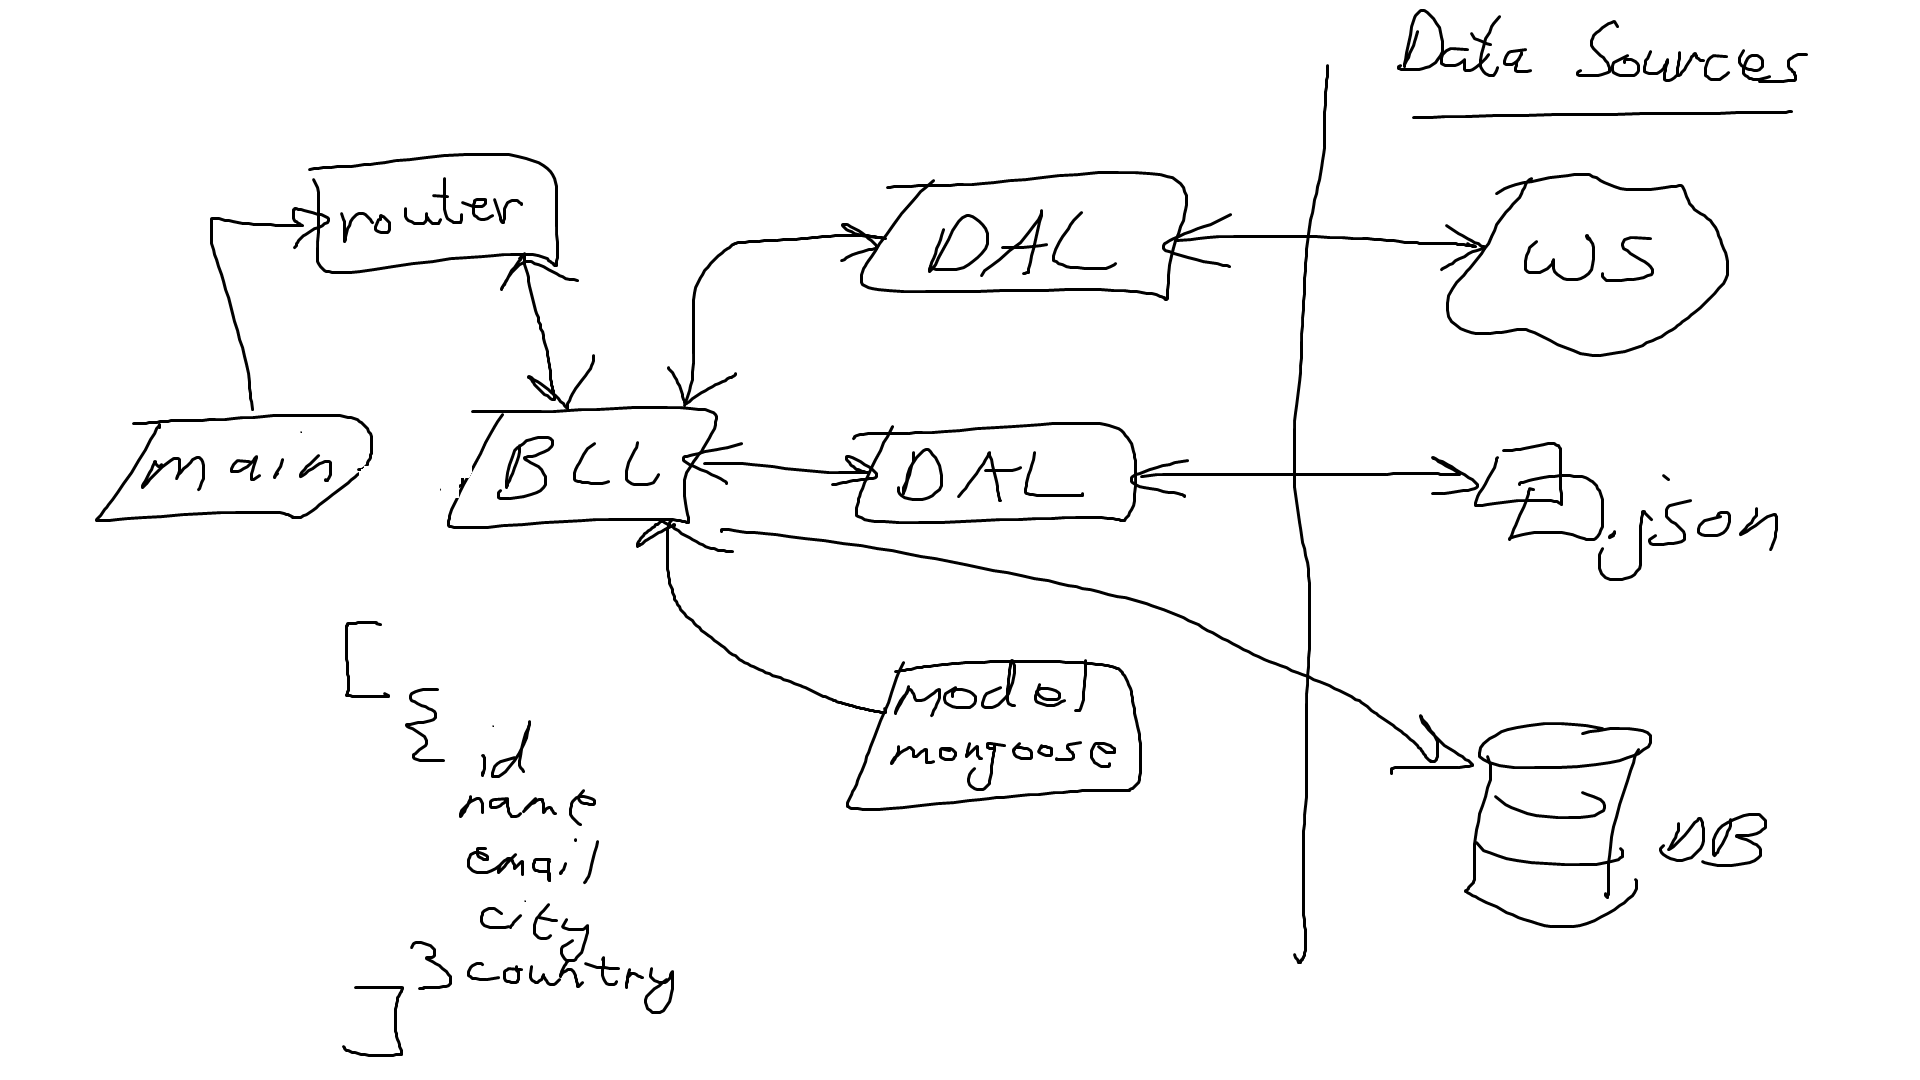 Data Sources
router
DAL
WS
main
BLL
DAL
.json
model
mongoose
DB
[
{
id
name
email
city
} country
]